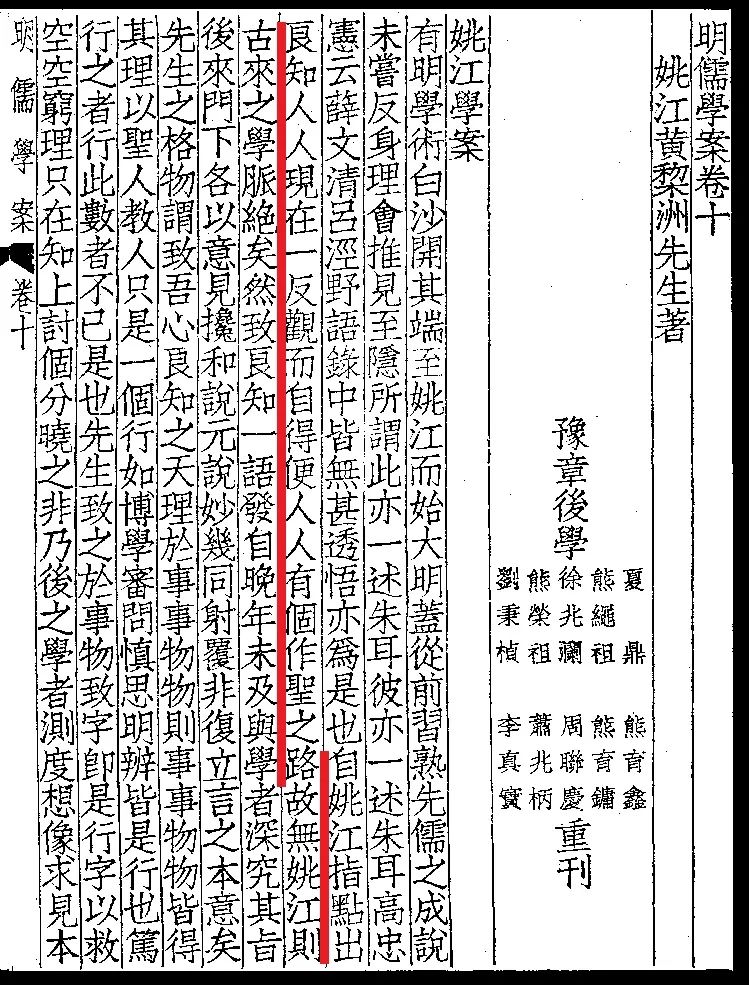 明儒學案卷十
姚江黃黎洲先生著
豫章後學
夏鼎 熊育鑫
熊繩祖 熊育鏞
徐兆瀾 周聯慶
熊榮祖 蕭兆柄
劉秉楨 李真實
重刊
姚江學案
有明學術白沙開其端至姚江而始大明蓋從前習熟先儒之成說
未嘗反身理會推見至隱所謂此亦一述朱耳彼亦一述朱耳高忠
憲云薛文清呂涇野語錄中皆無甚透悟亦爲是也自姚江指點出
良知人人現在一反觀而自得便人人有個作聖之路故無姚江則
古來之學脈絕矣然致良知一語發自晚年未及與學者深究其旨
後來門下各以意見攙和說元說妙幾同射覆非復立言之本意矣
先生之格物謂致吾心良知之天理於事事物物則事事物物皆得
其理以聖人教人只是一個行如博學審問慎思明辨皆是行也篤
行之者行此數者不已是也先生致之於事物致字卽是行字以救
空空窮理只在知上討個分曉之非乃後之學者測度想像求見本
明儒學案 卷十